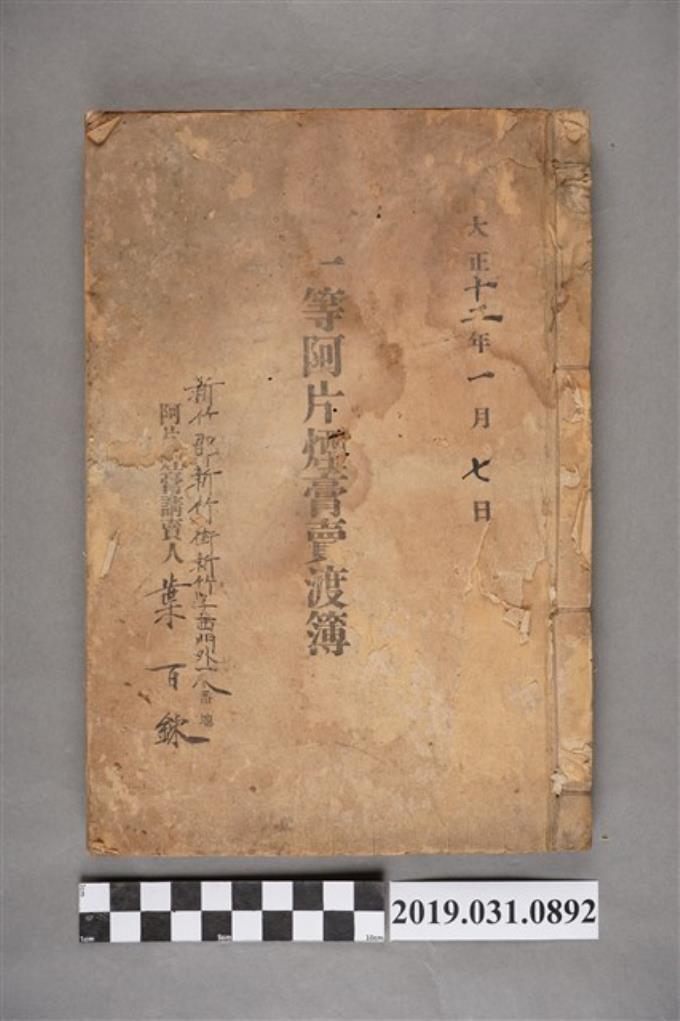 大正十二年一月七日
一等阿片煙膏賣渡簿
新竹郡新竹街新竹字西門外一八番地
阿片煙膏請賣人 葉百
1cm 5cm 10cm
2019.031.0892